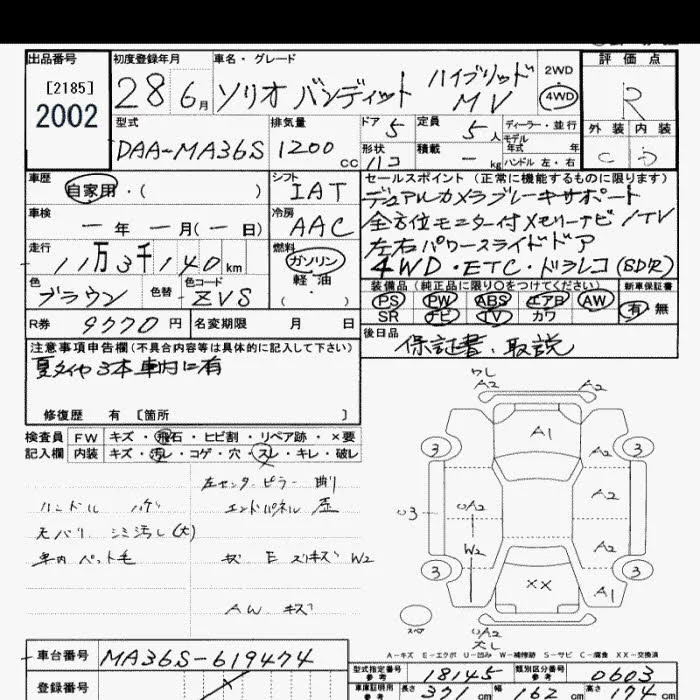 出品番号
[2185]
2002
初度登録年月
28 6月
車名・グレード
ソリオ バンディット ハイブリッド MV
2WD
4WD
評価点
R
外装 内装
C D
型式
DAA-MA36S
排気量
1200 cc
ドア 5
定員 5人
形状 ハコ
積載 ー kg
ディーラー・並行
モデル年式 年
ハンドル 左・右
車歴
自家用・( )
シフト
IAT
車検
ー年 ー月(ー日)
冷房
AAC
走行
11万3千140km
燃料
ガソリン
軽油
( )
色
ブラウン
色替
色コード
ZVS
セールスポイント(正常に機能するものに限ります)
デュアルカメラブレーキサポート
全方位モニター付メモリーナビ/TV
左右パワースライドドア
4WD・ETC・ドラレコ(SDR)
装備品(純正品に限り○をつけてください)
PS PW ABS エアB AW
SR ナビ TV カワ
新車保証書
有 無
R券 9770円
名変期限 月 日
後日品
保証書、取説
注意事項申告欄(不具合内容等は具体的に記入して下さい)
夏タイヤ3本車内に有
修復歴 有 [箇所 ]
検査員記入欄
FW キズ・飛石・ヒビ割・リペア跡・×要
内装 キズ・汚レ・コゲ・穴・スレ・キレ・破レ
左センターピラー 曲り
ハンドル ハゲ
エンドパネル 歪
天バリ シミ汚レ(大)
車内 ペット毛
キズ E スリキズ W2
AW キズ
ワレ
A2 A2
A1
3 3
A2
A2
U3
UA2
W2
A2
3 3
XX
A1
スペア
UA2
穴し
A-キズ E-エクボ U-凹み W-補修跡 S-サビ C-腐食 XX-交換済
車台番号 MA36S-619474
登録番号
型式指定番号 参考 18145
類別区分番号 参考 0603
車庫証明用 参考 長さ 371cm 幅 162cm 高さ 174cm